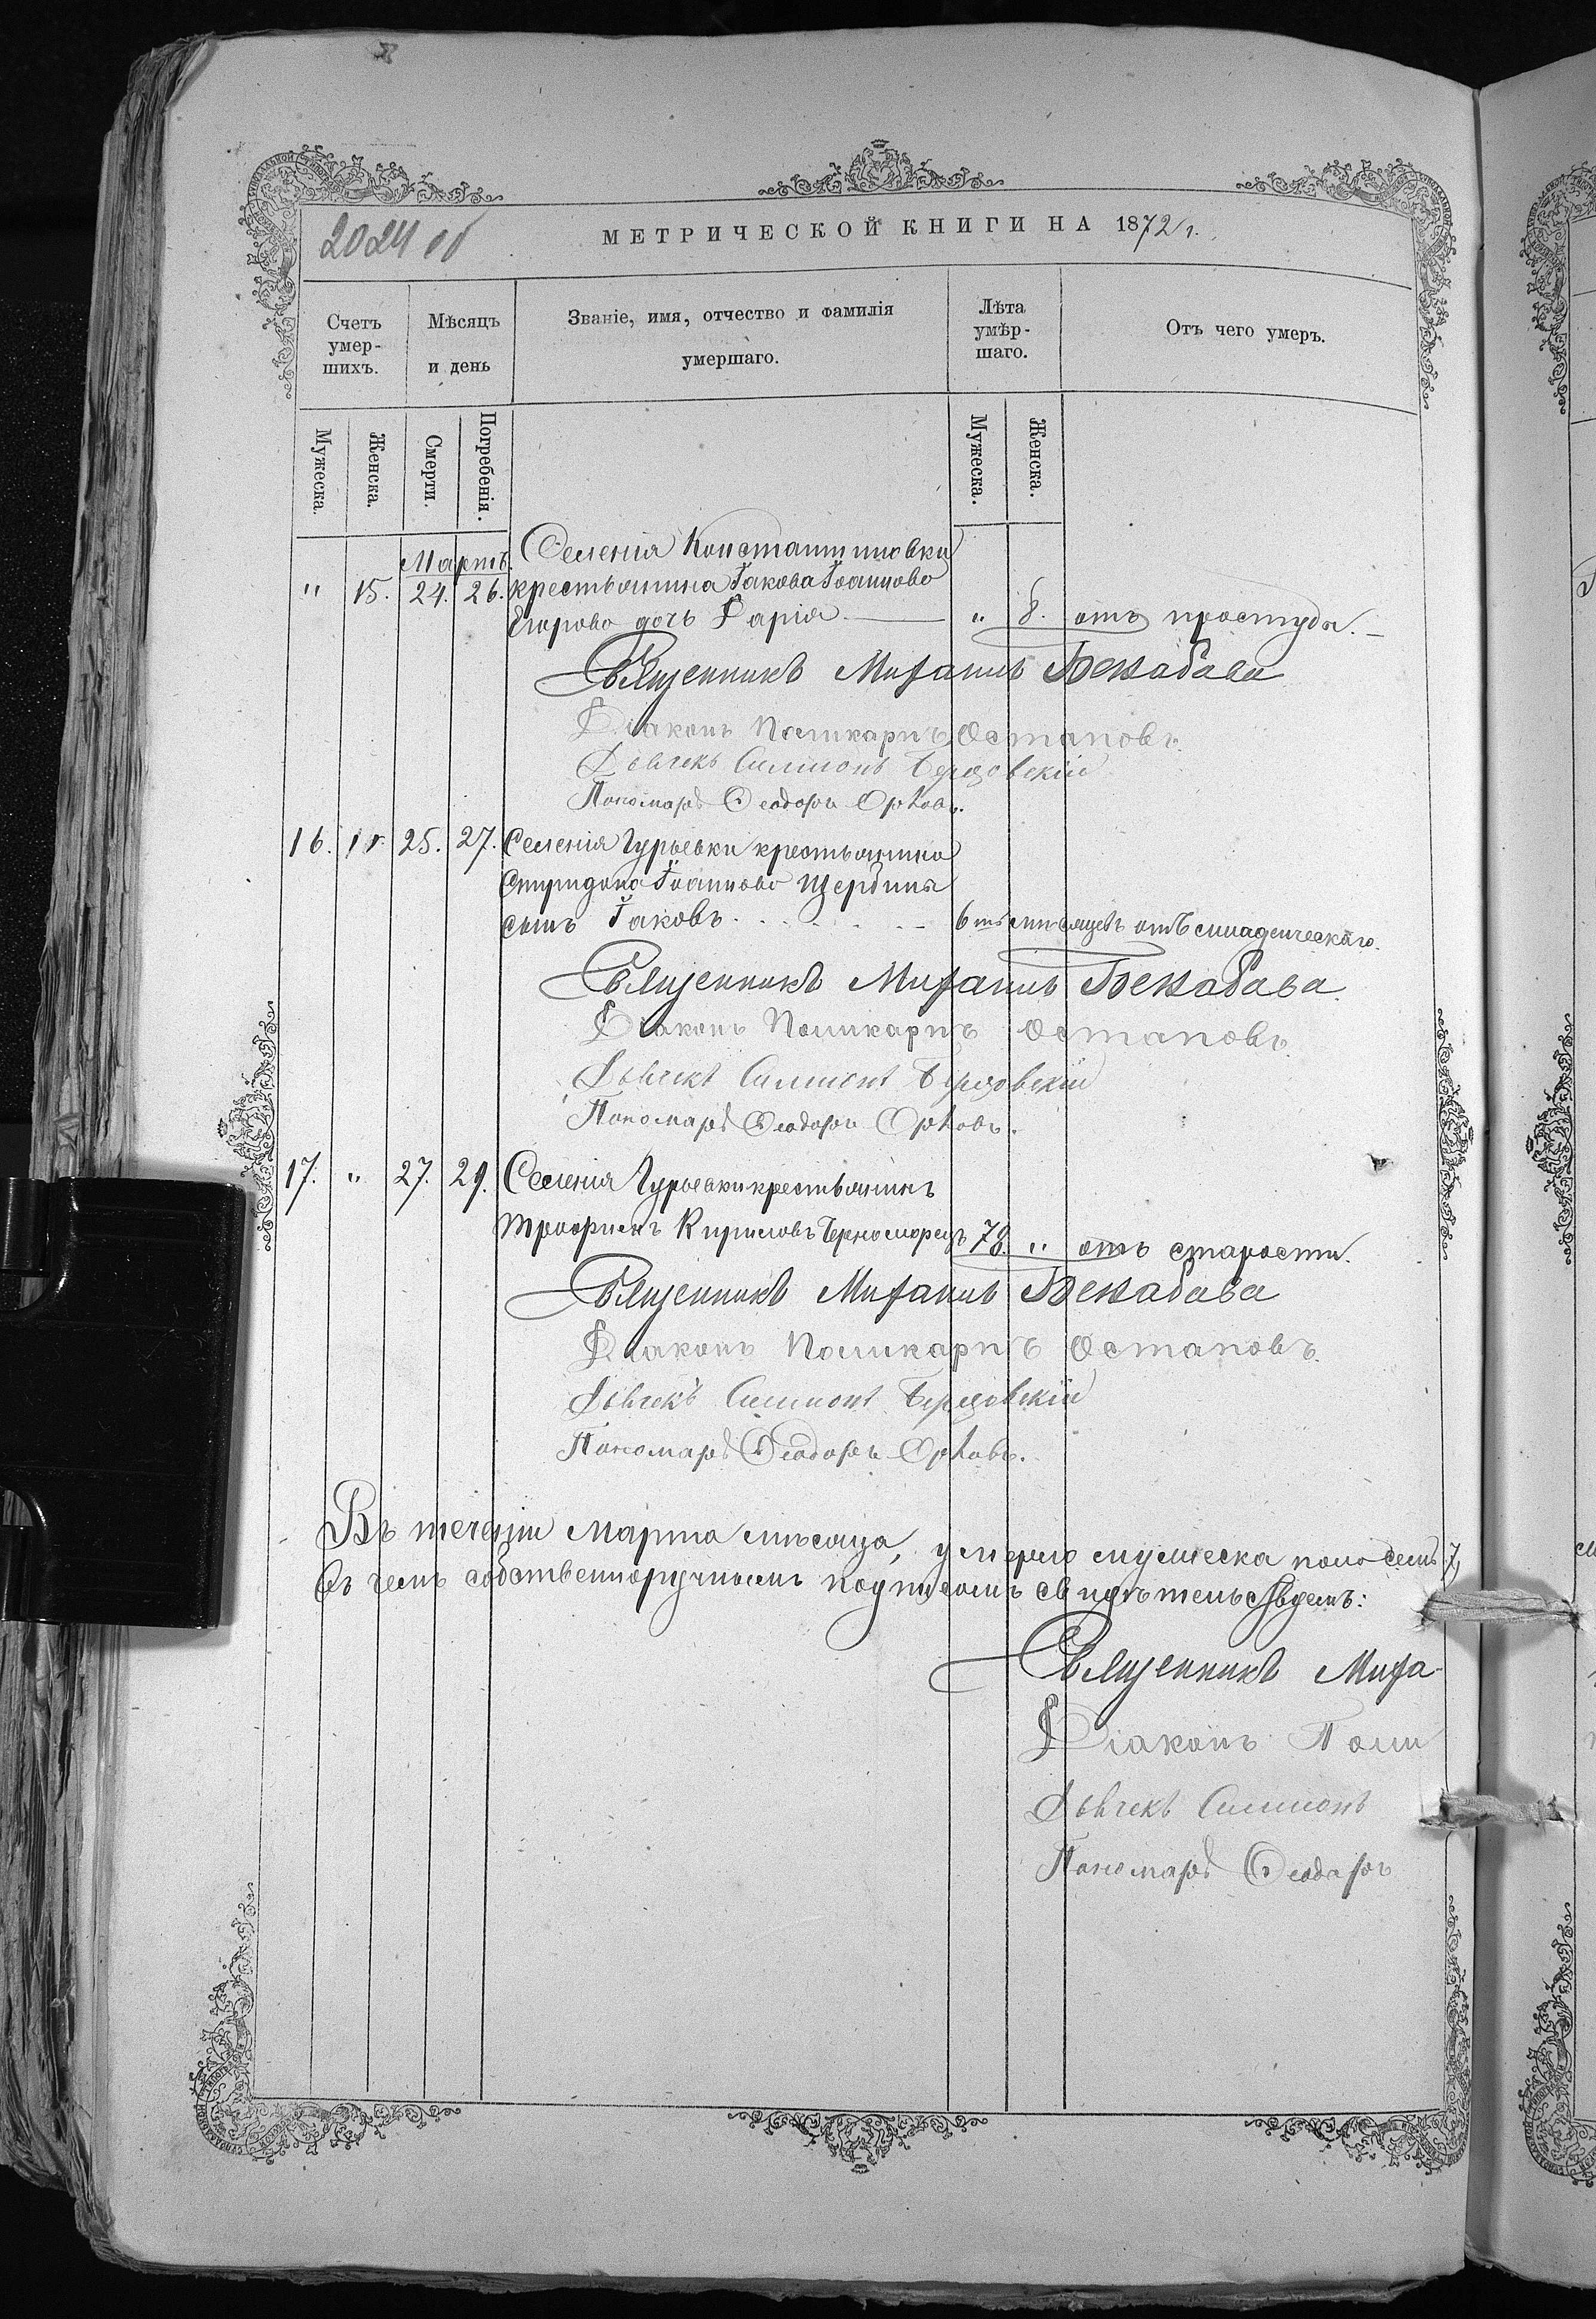 2024 об
МЕТРИЧЕСКОЙ КНИГИ НА 1872 г.
Счетъ умер-шихъ.
Мѣсяцъ и день
Званіе, имя, отчество и фамилія умершаго.
Лѣта умѣр-шаго.
Отъ чего умеръ.
Мужеска.
Женска.
Смерти.
Погребенія.
Мужеска.
Женска.
Мартъ. Селенія Константиновки
" 15. 24. 26. крестьянина Іакова Іоаннова
Егорова дочь Дарія. — " 8. отъ простуды. —
Священникъ Михаилъ
Діаконъ Поликарпъ Остаповъ.
Дьячекъ Симионъ
Пономарь Ѳеодоръ Орловъ.
16. " 25. 27. Селенія Гурьевки крестьянина
Спиридона Іоаннова Щербины
сынъ Іаковъ. 6ти мѣсяцевъ отъ младенческаго.
Священникъ Михаилъ
Діаконъ Поликарпъ Остаповъ.
Дьячекъ Симионъ
Пономарь Ѳеодоръ Орловъ.
17. " 27. 29. Селенія Гурьевки крестьянинъ
Трофимъ Кириловъ Черноморецъ 78. " отъ старости.
Священникъ Михаилъ
Діаконъ Поликарпъ Остаповъ.
Дьячекъ Симионъ
Пономарь Ѳеодоръ Орловъ.
Въ теченіи Марта мѣсяца, умерло мужеска пола семь 7,
Въ чемъ собственноручнымъ подписомъ свидѣтельствуемъ:
Священникъ Миха-
Діаконъ Поли
Дьячекъ Симионъ
Пономарь Ѳеодоръ